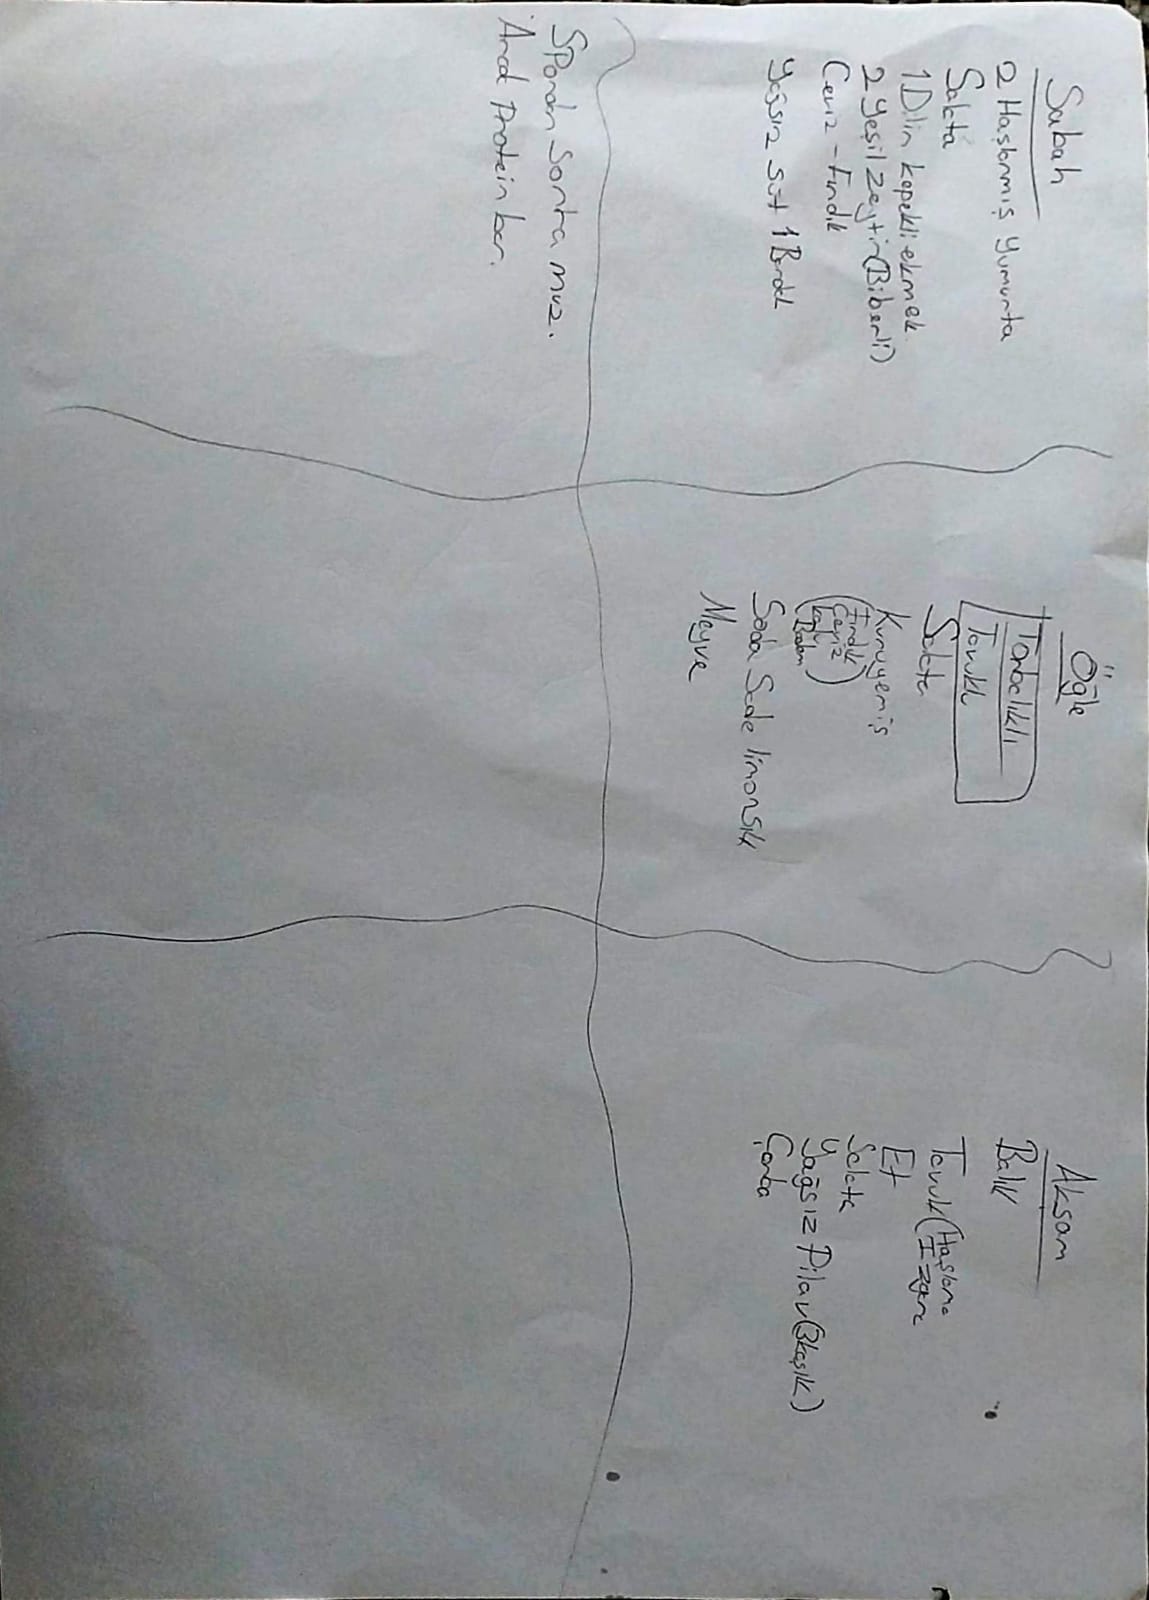 Sabah
2 Haşlanmış yumurta
Salata
1 Dilin kepekli ekmek
2 yeşil zeytin (Biberli)
Ceviz - Fındık
yağsız süt 1 Bardak
Öğle
Tonbalıklı
Tavuklu
Salata
Kuruyemiş
(Fındık
Ceviz
Badem)
Soda Sade limonsık
Meyve
Aksam
Balık
Tavuk (Haşlama
Izgara
Et
Salata
Yağsız Pilav (3kaşık)
Çorba
Spordan Sonra muz.
Arad Protein bar.